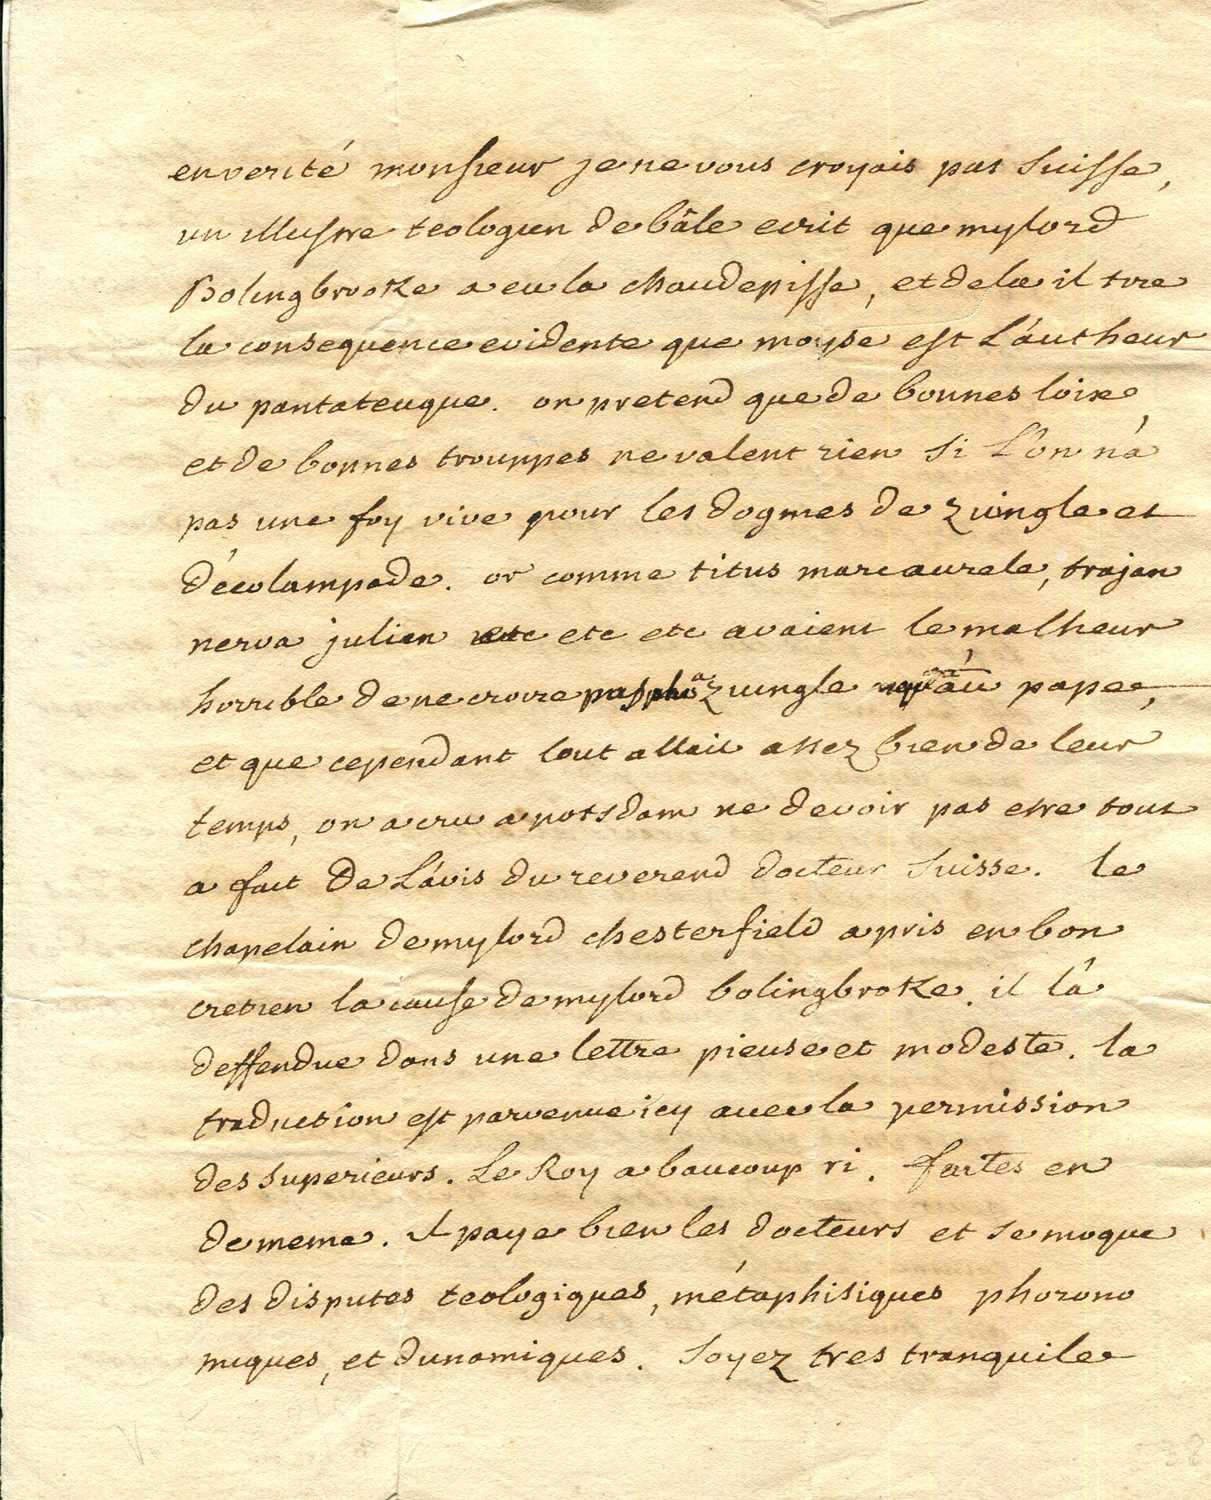 en verité monsieur je ne vous croyais pas suisse,
un illustre teologien de bâle ecrit que mylord
Bolingbrooke a eu la chaudepisse, et de la il tire
la consequence evidente que moyse est L'autheur
du pantateuque. on pretend que de bonnes loix
et de bonnes trouppes ne valent rien si L'on n'a
pas une foy vive pour les dogmes de zuingle et
d'ecolampade. or comme titus marc aurele, trajan
nerva julien etc etc avaient le malheur
horrible de ne croire pas plus a zuingle qu'au pape,
et que cependant tout allait assez bien de leur
temps, on a cru a potsdam ne devoir pas etre tout
a fait de L'avis du reverend docteur suisse. le
chapelain de mylord chesterfield a pris en bon
cretien la cause de mylord bolingbroke. il l'a
deffendue dans une lettre pieuse et modeste. la
traduction est parvenue icy avec la permission
des superieurs. Le Roy a baucoup ri. faites en
de meme. il paye bien les docteurs et se moque
des disputes teologiques, métaphisiques phorono
miques, et dunamiques. soyez tres tranquile